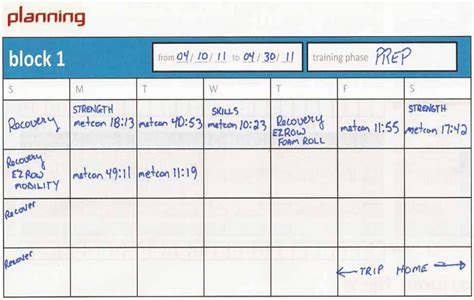 planning
block 1
from 04/10/11 to 04/30/11
training phase PREP
S M T W T F S
Recovery
STRENGTH
metcon 18:13
metcon 40:53
SKILLS
metcon 10:23
Recovery
EZ ROW
FOAM ROLL
metcon 11:55
STRENGTH
metcon 17:42
Recovery
EZ ROW
MOBILITY
metcon 49:11
metcon 11:19
Recover
Recover
← TRIP HOME →